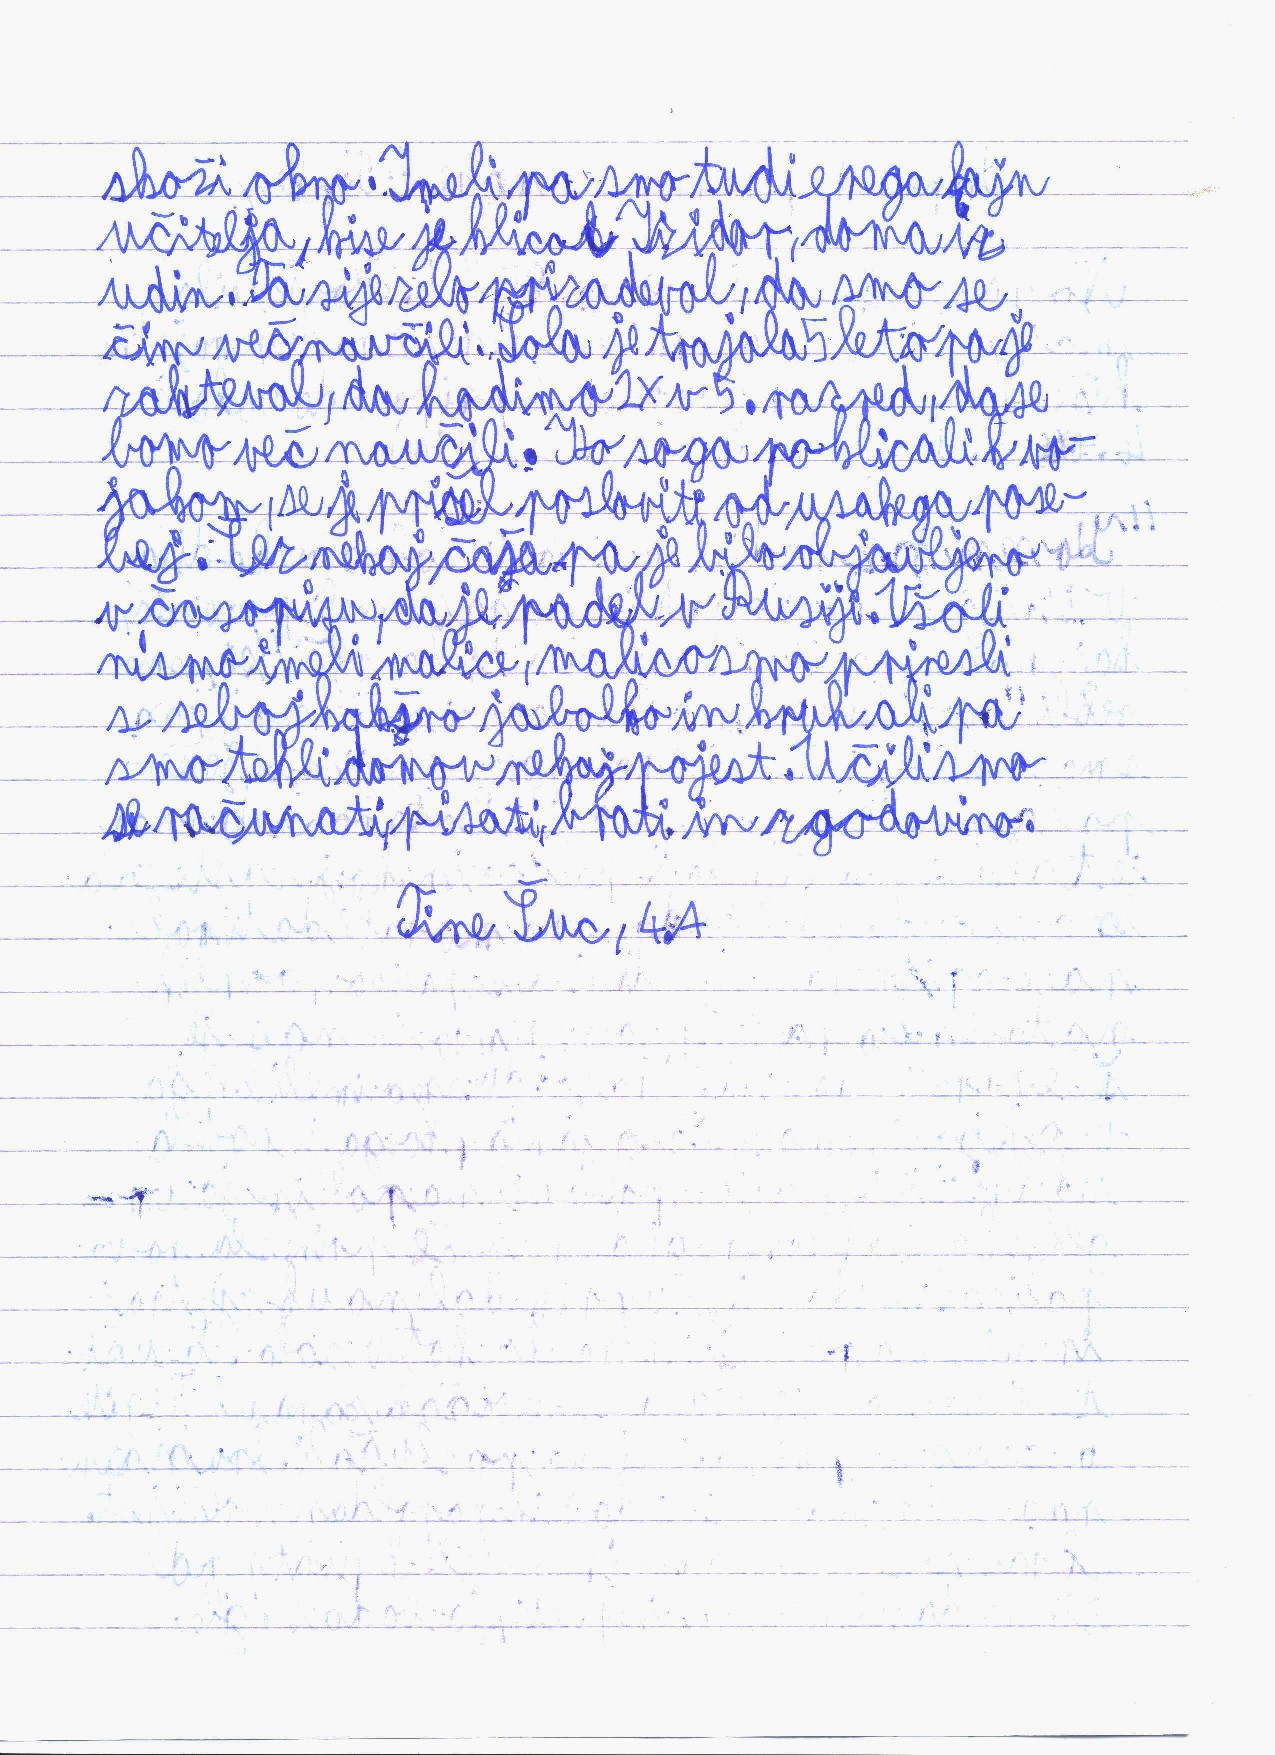 skozi okno. Imeli pa smo tudi enega fajn
učitelja, ki se je klical Izidor, doma iz
udin. Ta si je zelo prizadeval, da smo se
čim več naučili. Šola je trajala 5 let a pa je
zahteval, da hodimo 2x v 5. razred, da se
bomo več naučili. Ko so ga poklicali k vo-
jakom, se je prišel posloviti od usakega pose-
bej. Čez nekaj časa pa je bilo objavljeno
v časopisu, da je padel v Rusiji. V šoli
nismo imeli malice, malico smo prinesli
s seboj kakšno jabolko in kruh ali pa
smo tekli domov nekaj pojest. Učili smo
se računati, pisati, brati in zgodovino.
Tine Šuc, 4.A